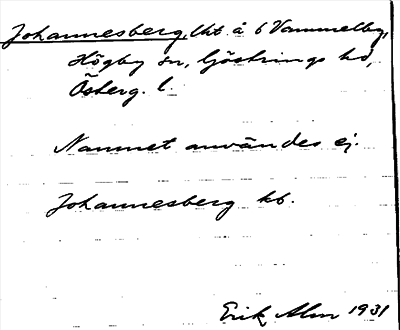 Johannesberg, lht. å 6 Vammelby,
Högby sn, Göstrings hd,
Österg. l.
Namnet användes ej.
Johannesberg kb.
Erik Alm 1931